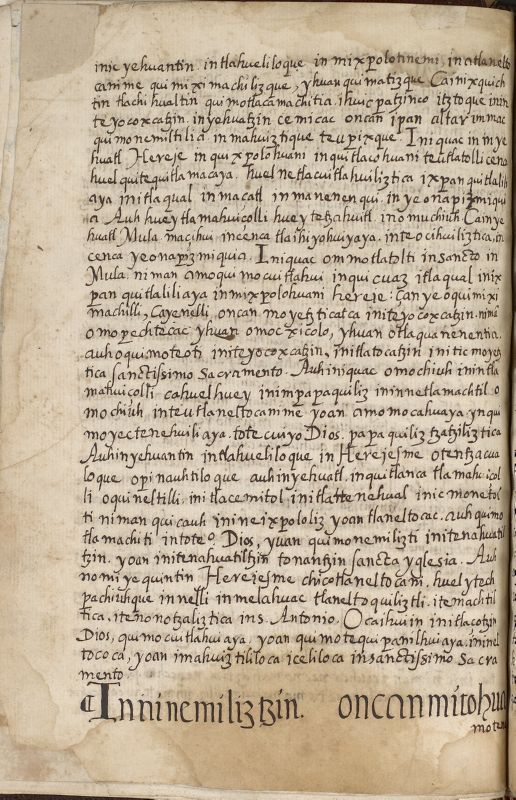 inic yehuantin. intlahueliloque in mixpolotinemi, in atlanelto
canime quimiximachilizque, yhuan quimatizque Ca inixquich
tin tlachihualtin quimotlacamachitia. ihuic patzinco itztoque inin
teyocoxcatzin. in yehuatzin cemicac oncan ipan altar immac
quimonemiltilia inmahuiztique teupixque. Iniquac in in ye
huatl Hereje in quixpolohuani in quitlacohuani teutlatolli cenca
huel quitequitlamacaya. huel netlacuitlahuiliztica ixpan quitlali
aya initlaqual in maçatl in manenenqui. in ye onapizmiqui
a Auh huey tlamahuiçolli huey tetzahuitl in omuchiuh. Ca in ye
huatl Mula. macihui incenca tlaihiyohuiyaya. inteocihuiliztica, in
cenca ye onapizmiquia. Iniquac ommotlatolti in Sancto in
Mula. niman amo quimocuitlahui in quicuaz itlaqual inix
pan quitlaliliaya in mixpolohuani hereje: Çan ye oquimixi
machilli, Ca yenelli, oncan moyetzticatca in iteyocoxcatzin. nima
omopechtecac yhuan omocxicolo, yhuan otlaquanenentia.
auh oquimoteoti initeyocoxcatzin, initlatocatzin in itic moyetz
tica Sanctissimo Sacramento. Auh iniquac omochiuh inintla
mahuiçolli cahuelhuey inimpapaquiliz ininnetlamachtil o
mochiuh inteutlaneltocanime yoan amo mocahuaya. ynqui
moyectenehuiliaya. totecuiyo Dios. papaquiliz tzatziliztica
Auh in yehuantin intlahueliloque in Herejesme otentzacua
loque opinauhtiloque auh in yehuatl. in quitlanca tlamahuiçol
li oquineltilli. initlacemitol. initlattenehual inic monetol
ti niman quicauh in ineixpololiz yoan tlaneltocac. auh quimo
tlamachiti in totecuiyo Dios, yuan quimonemilizti initenahuatil
tzin. yoan initenahuatiltzin tonantzin Sancta yglesia. Auh
no miyequintin Herejesme chicotlaneltocani. huel ytech
pachiuhque in nelli in melahuac tlaneltoquiliztli. itemachtil
tica. itenonotzaliztica in S. Antonio. Ocaihui in initlaçotzin
Dios, quimocuitlahuiaya. yoan quimotequipanilhuiaya. ininel
tococa, yoan imahuiztililoca iceliloca in Sanctissimo Sacra
mento.
¶ In ininemiliztzin. oncan mitohua
moten